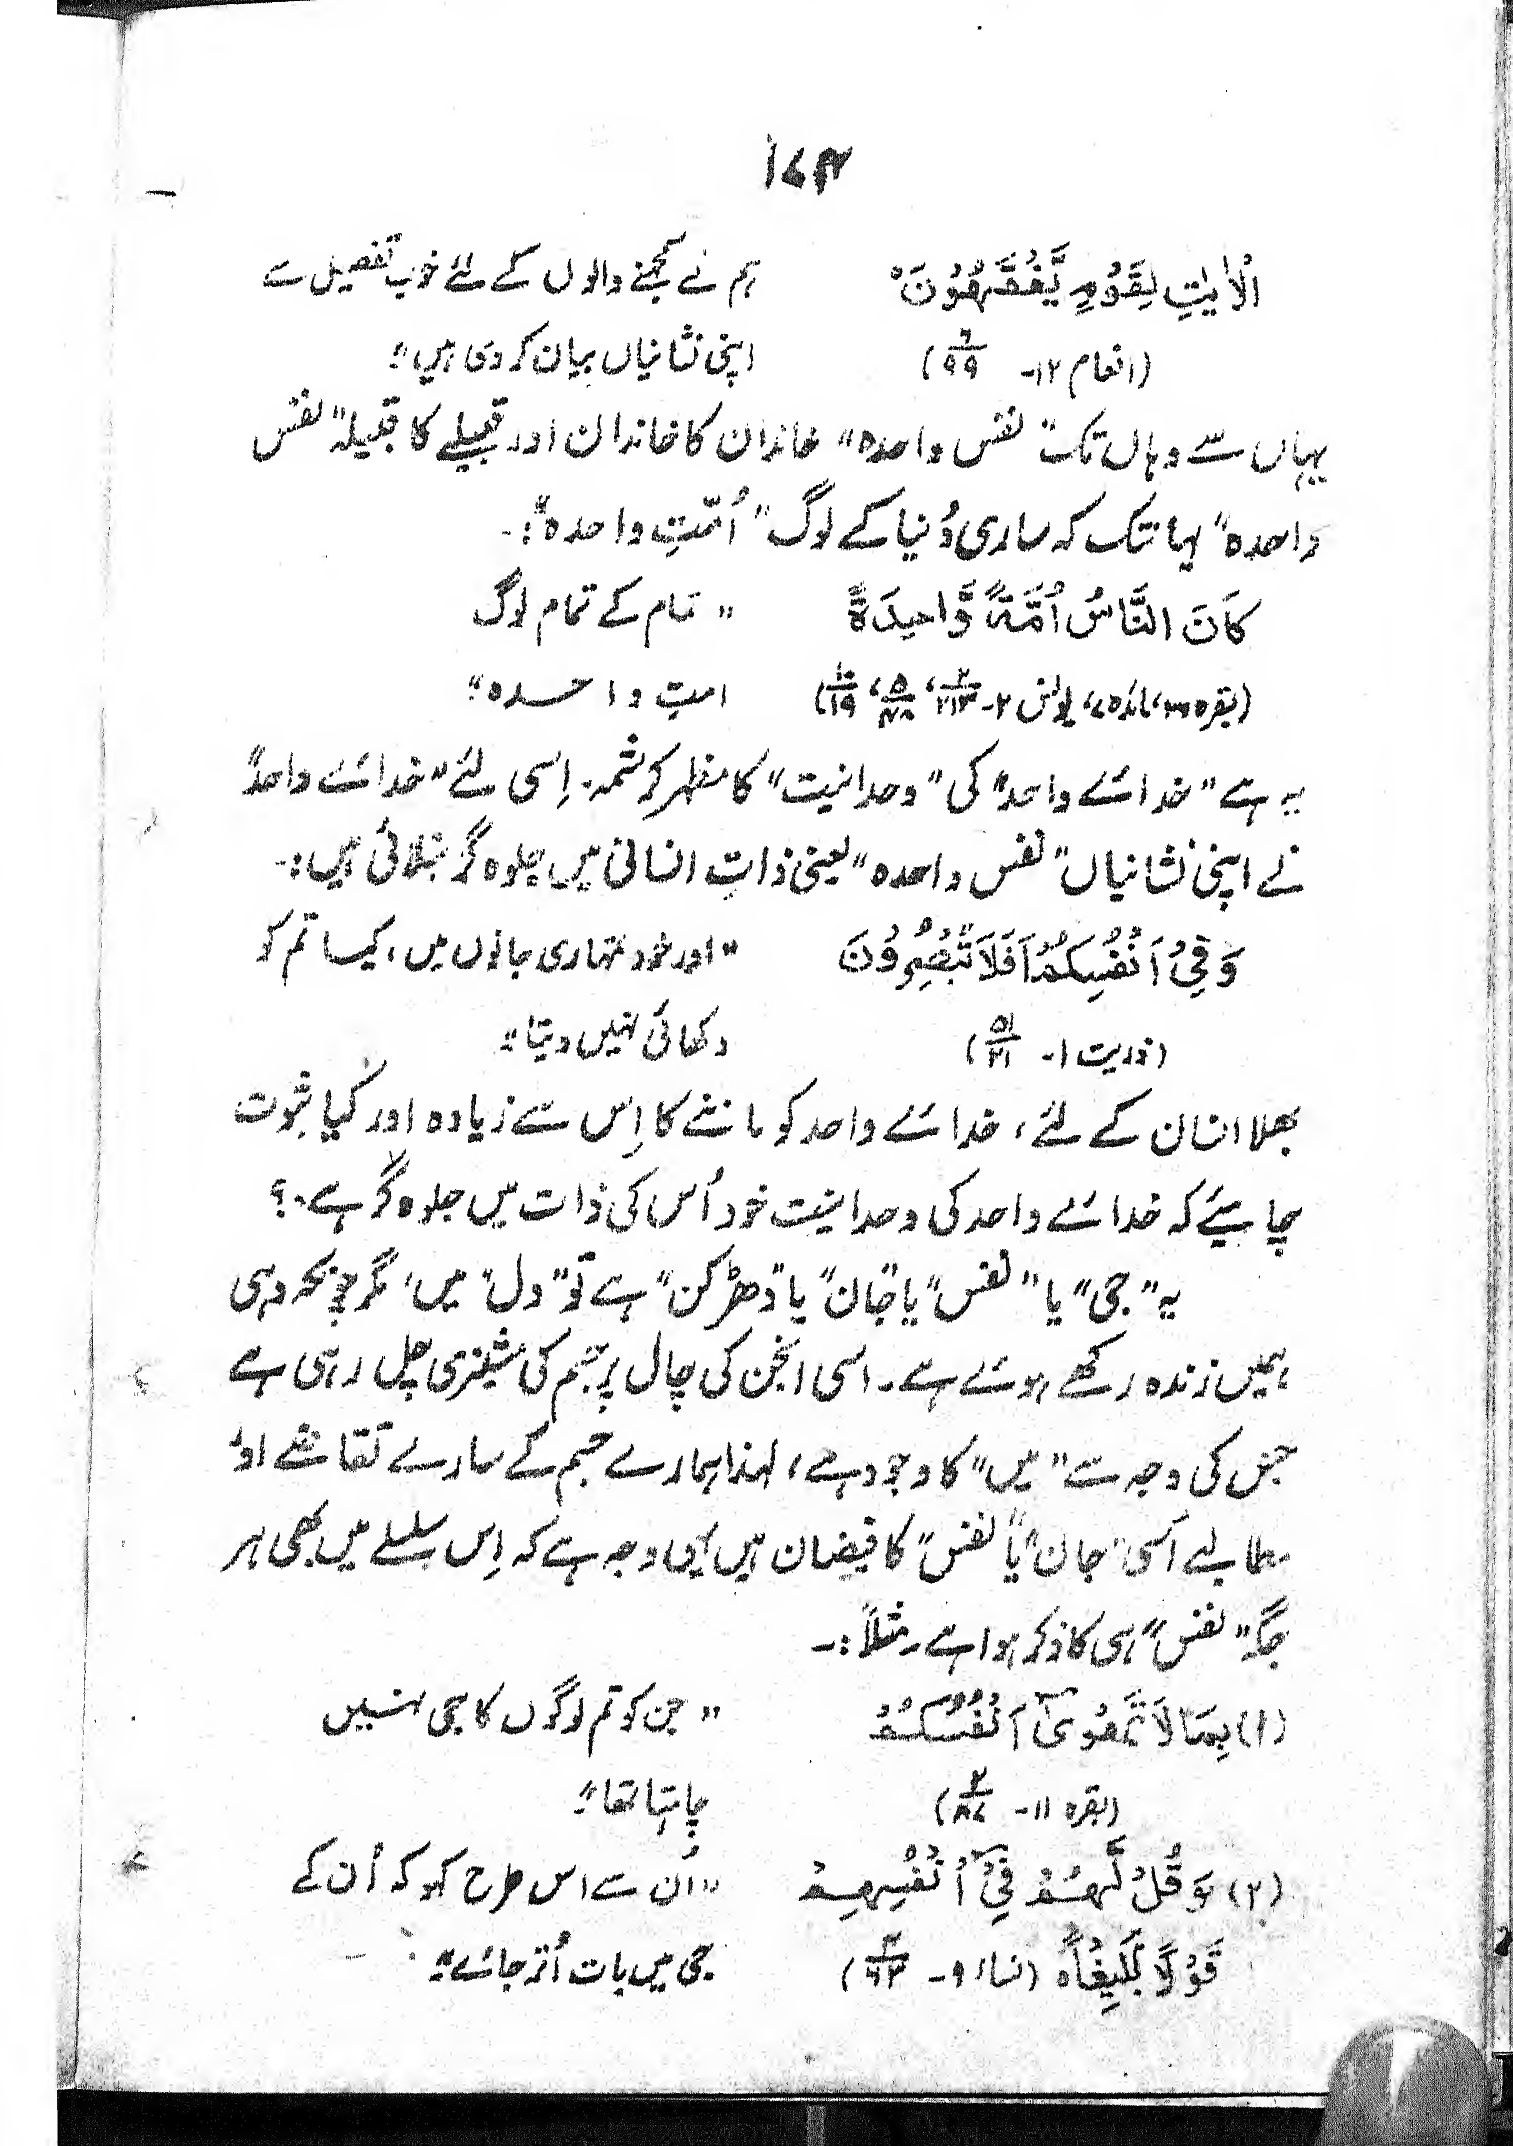 ۱۷۴
الْاٰیٰتِ لِقَوْمٍ یَّفْقَہُوْنَ ہم نے سمجھنے والوں کے لئے خوب تفصیل سے
(انعام ۱۲- ۶/۹۹) اپنی نشانیاں بیان کر دی ہیں"
یہاں سے وہاں تک "نفس واحدہ" خاندان کا خاندان اور قبیلے کا قبیلہ "نفس
واحدہ" یہانتک کہ ساری دُنیا کے لوگ "اُمّتِ واحدہ":۔
کَانَ النَّاسُ اُمَّۃً وَّاحِدَۃً "تمام کے تمام لوگ
(بقرہ ۲۶، مائدہ ۷، یونس ۲- ۲/۲۱۳، ۵/۴۸، ۱۰/۱۹) امتِ واحدہ"
یہ ہے "خدائے واحد" کی "وحدانیت" کا مظہر کرشمہ۔ اِسی لئے "خدائے واحد"
نے اپنی نشانیاں "نفس واحدہ" یعنی ذاتِ انسانی میں جلوہ گر بتلائی ہیں:۔
وَفِیْ اَنْفُسِکُمْ اَفَلَا تُبْصِرُوْنَ "اور خود تمہاری جانوں میں، کیا تم کو
(ذٰریت ۱- ۵۱/۲۱) دکھائی نہیں دیتا"
بھلا انسان کے لئے، خدائے واحد کو ماننے کا اِس سے زیادہ اور کیا ثبوت
چاہیئے کہ خدائے واحد کی وحدانیت خود اُس کی ذات میں جلوہ گر ہے۔؟
یہ "جی" یا "نفس" یا "جان" یا "دھڑکن" ہے تو "دل" میں، مگر چونکہ وہی
ہمیں زندہ رکھے ہوئے ہے۔ اسی انجن کی چال پر جسم کی مشینری چل رہی ہے
جس کی وجہ سے "میں" کا وجود ہے، لہذا ہمارے جسم کے سارے تقاضے اور
مطالبے اسی "جان" یا "نفس" کا فیضان ہیں یہی وجہ ہے کہ اِس سلسلے میں بھی ہر
جگہ "نفس" ہی کا ذکر ہوا ہے۔ مثلاً:۔
(۱) بِمَا لَا تَھْوٰیٓ اَنْفُسُکُمُ "جن کو تم لوگوں کا جی نہیں
(بقرہ ۱۱- ۲/۸۷) چاہتا تھا"
(۲) وَقُلْ لَّہُمْ فِیْٓ اَنْفُسِہِمْ "اُن سے اس طرح کہو کہ اُن کے
قَوْلًا بَلِیْغًا (نساء ۹- ۴/۶۳) جی میں بات اُتر جائے"